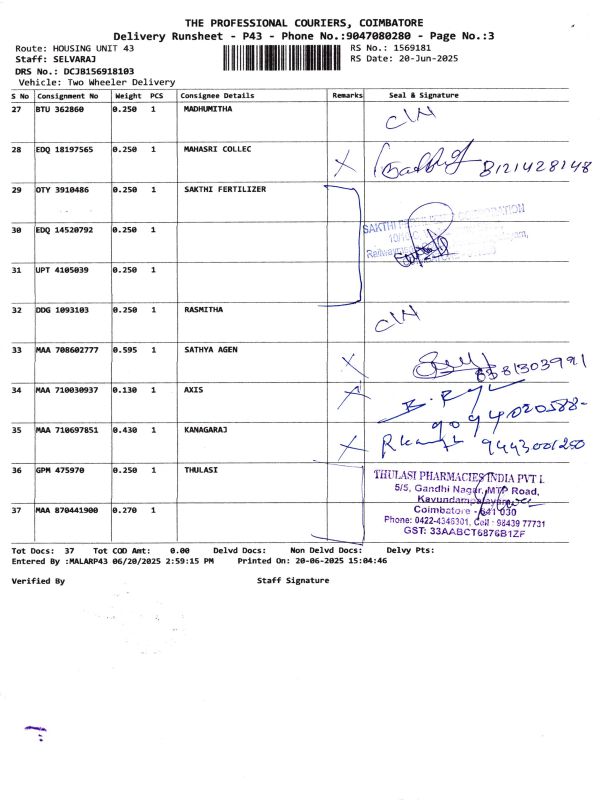 THE PROFESSIONAL COURIERS, COIMBATORE
Delivery Runsheet - P43 - Phone No.:9047080280 - Page No.:3
Route: HOUSING UNIT 43 RS No.: 1569181
Staff: SELVARAJ RS Date: 20-Jun-2025
DRS No.: DCJB156918103
Vehicle: Two Wheeler Delivery
S No Consignment No Weight PCS Consignee Details Remarks Seal & Signature
27 BTU 362860 0.250 1 MADHUMITHA C/N
28 EDQ 18197565 0.250 1 MAHASRI COLLEC X 8121428148
29 OTY 3910486 0.250 1 SAKTHI FERTILIZER
SAKTHI
30 EDQ 14520792 0.250 1
31 UPT 4105039 0.250 1
32 DDG 1093103 0.250 1 RASMITHA C/N
33 MAA 708602777 0.595 1 SATHYA AGEN X
34 MAA 710030937 0.130 1 AXIS X
35 MAA 710697851 0.430 1 KANAGARAJ X 9443001250
36 GPM 475970 0.250 1 THULASI
THULASI PHARMACIES INDIA PVT L
5/5, Gandhi Nagar, MTP Road,
Kavundampalayam
37 MAA 870441900 0.270 1
Coimbatore - 641 030
Phone: 0422-4346301, Cell : 98439 77731
GST: 33AABCT6876B1ZF
Tot Docs: 37 Tot COD Amt: 0.00 Delvd Docs: Non Delvd Docs: Delvy Pts:
Entered By :MALARP43 06/20/2025 2:59:15 PM Printed On: 20-06-2025 15:04:46
Verified By Staff Signature